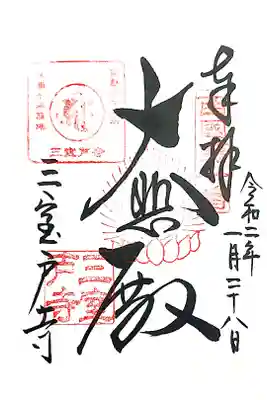 奉拝
令和二年
一月二十八日
大悲殿
三室戸寺
三室戸寺